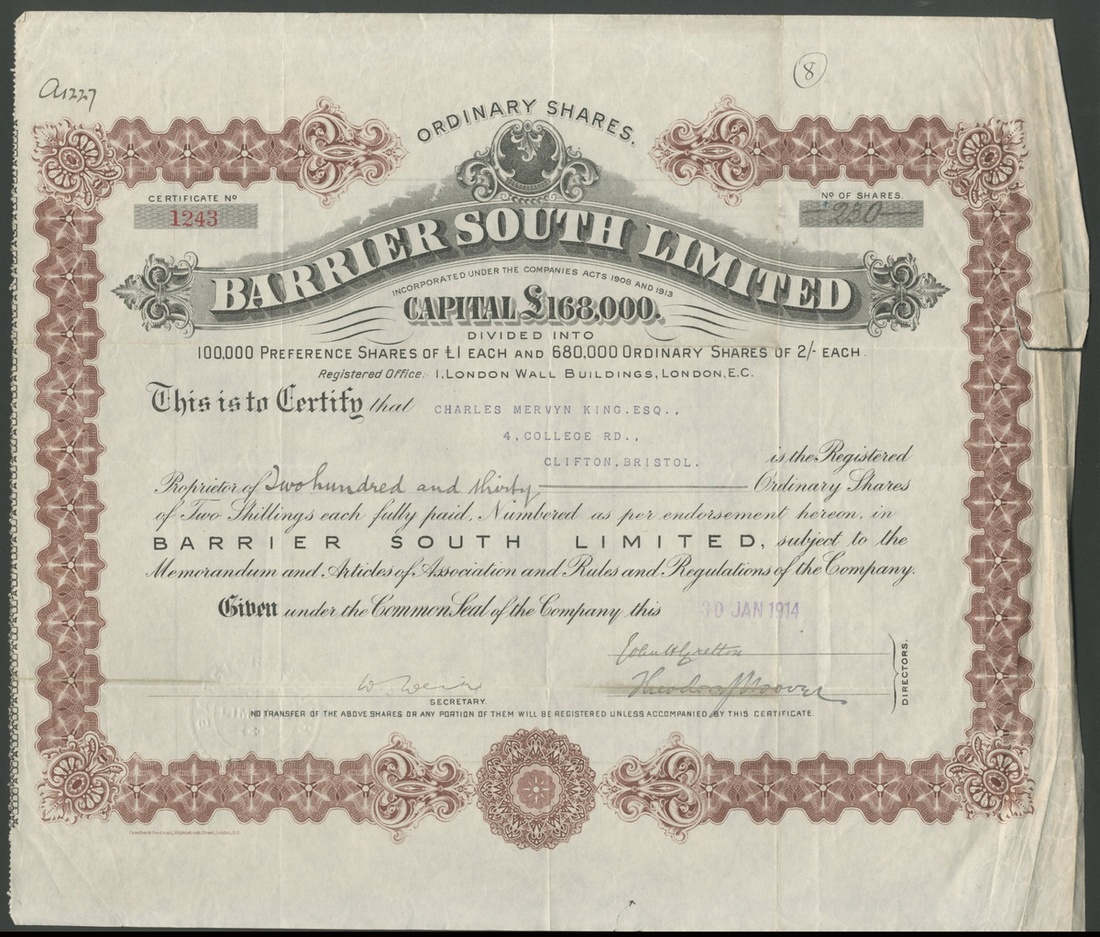 A1227
8
ORDINARY SHARES.
CERTIFICATE No
1243
No OF SHARES.
230
BARRIER SOUTH LIMITED
INCORPORATED UNDER THE COMPANIES ACTS 1908 AND 1913
CAPITAL £168,000.
DIVIDED INTO
100,000 PREFERENCE SHARES OF £1 EACH AND 680,000 ORDINARY SHARES OF 2/- EACH.
Registered Office: 1, LONDON WALL BUILDINGS, LONDON, E.C.
This is to Certify that CHARLES MERVYN KING.ESQ.,
4,COLLEGE RD.,
CLIFTON,BRISTOL.
is the Registered
Proprietor of Two hundred and thirty Ordinary Shares
of Two Shillings each fully paid, Numbered as per endorsement hereon, in
BARRIER SOUTH LIMITED, subject to the
Memorandum and Articles of Association and Rules and Regulations of the Company.
Given under the Common Seal of the Company this 30 JAN 1914
John H Gretton
Theodore J Hoover
DIRECTORS.
SECRETARY.
NO TRANSFER OF THE ABOVE SHARES OR ANY PORTION OF THEM WILL BE REGISTERED UNLESS ACCOMPANIED BY THIS CERTIFICATE.